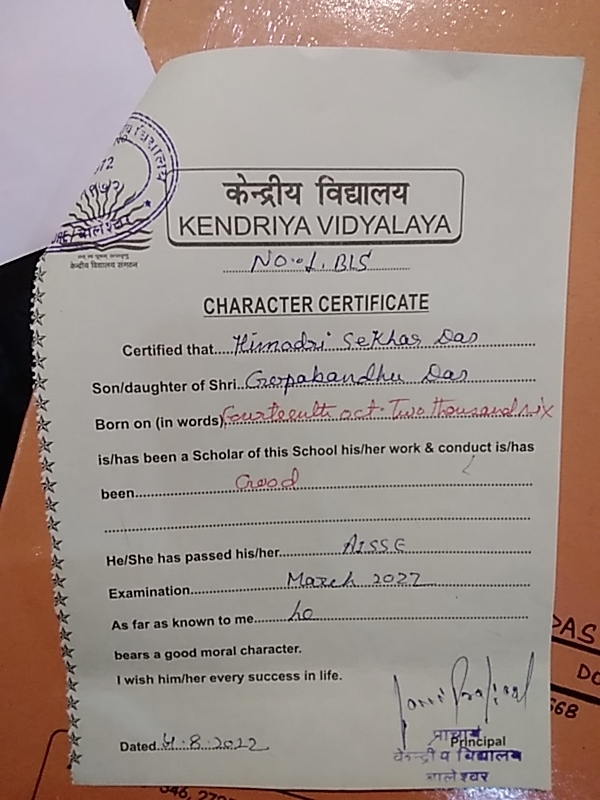 केन्द्रीय विद्यालय
KENDRIYA VIDYALAYA
केन्द्रीय विद्यालय संगठन
NO.1. BLS
CHARACTER CERTIFICATE
Certified that Himadri Sekhar Das
Son/daughter of Shri Gopabandhu Das
Born on (in words) fourteenth oct. Two thousand six
is/has been a Scholar of this School his/her work & conduct is/has
been Good
He/She has passed his/her AISSE
Examination March 2022
As far as known to me he
bears a good moral character.
I wish him/her every success in life.
Dated 4.8.2022
प्राचार्य
Principal
केन्द्रीय विद्यालय
बालेश्वर
DAS
DO
568